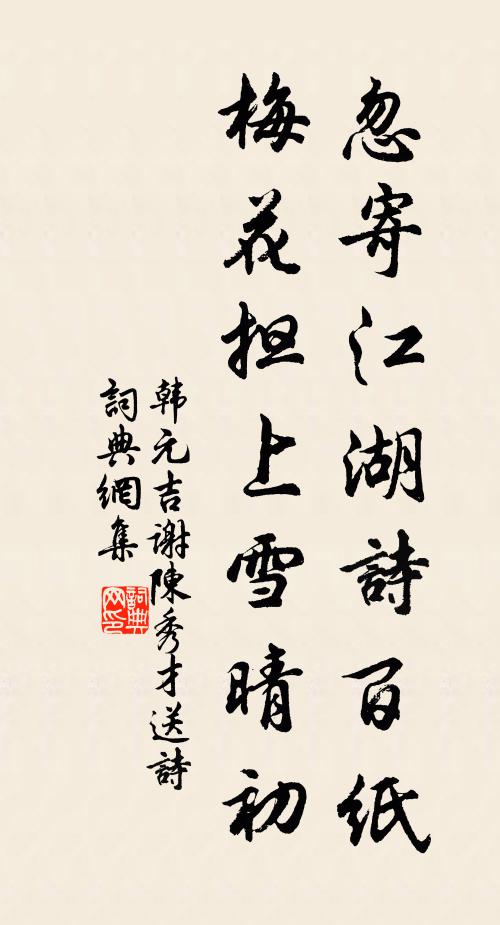 忽寄江湖詩百紙
梅花担上雪晴初
韩元吉谢陳秀才送詩
詞典網集
詞典网印